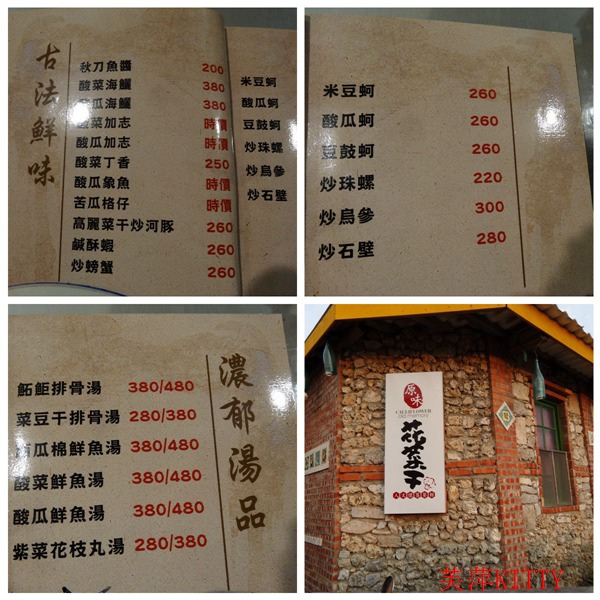 古法鮮味
秋刀魚醬 200
酸菜海鱺 380
酸瓜海鱺 380
酸菜加志 時價
酸瓜加志 時價
酸菜丁香 250
酸瓜象魚 時價
苦瓜格仔 時價
高麗菜干炒河豚 260
鹹酥蝦 260
炒螃蟹 260
米豆蚵
酸瓜蚵
豆鼓蚵
炒珠螺
炒烏參
炒石壁
米豆蚵 260
酸瓜蚵 260
豆鼓蚵 260
炒珠螺 220
炒烏參 300
炒石壁 280
濃郁湯品
排骨湯 380/480
菜豆干排骨湯 280/380
瓜棉鮮魚湯 380/480
酸菜鮮魚湯 380/480
酸瓜鮮魚湯 380/480
紫菜花枝丸湯 280/380
原味
CAULIFLOWER
old memory
花菜干
芙萍KITTY